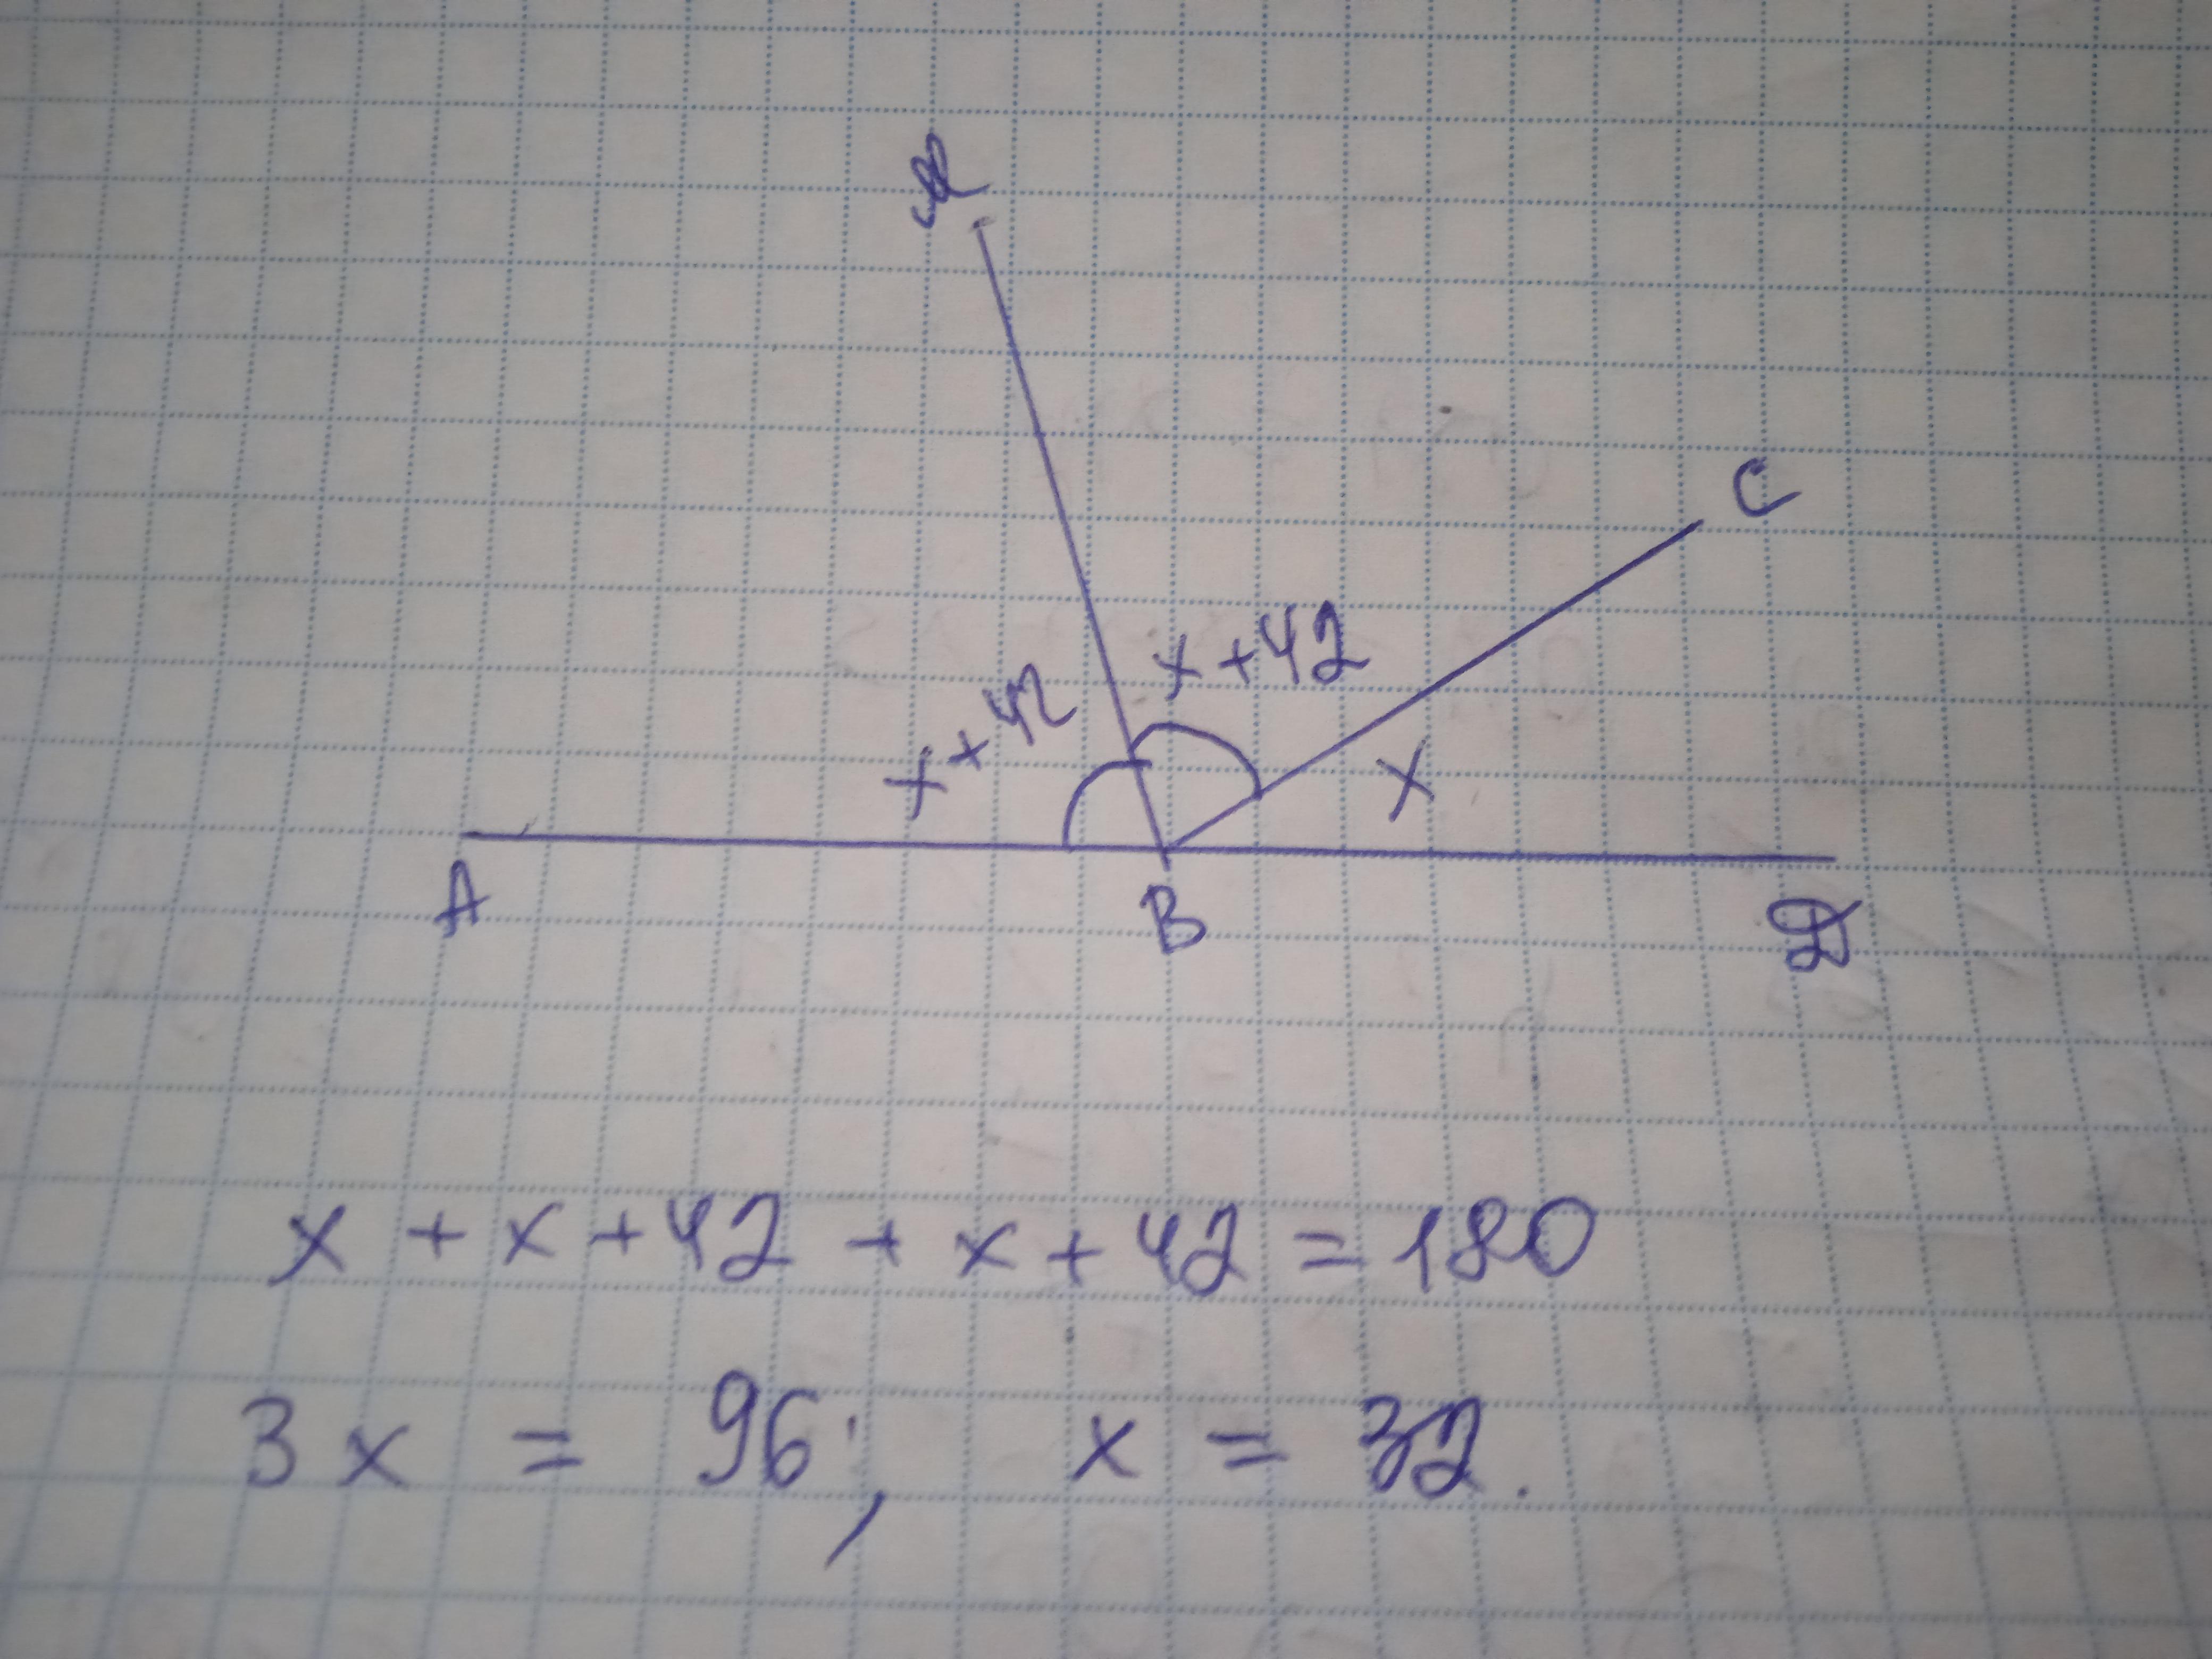 M
C
x+42
x+42
x
A
B
D
x + x + 42 + x + 42 = 180
3x = 96; x = 32.